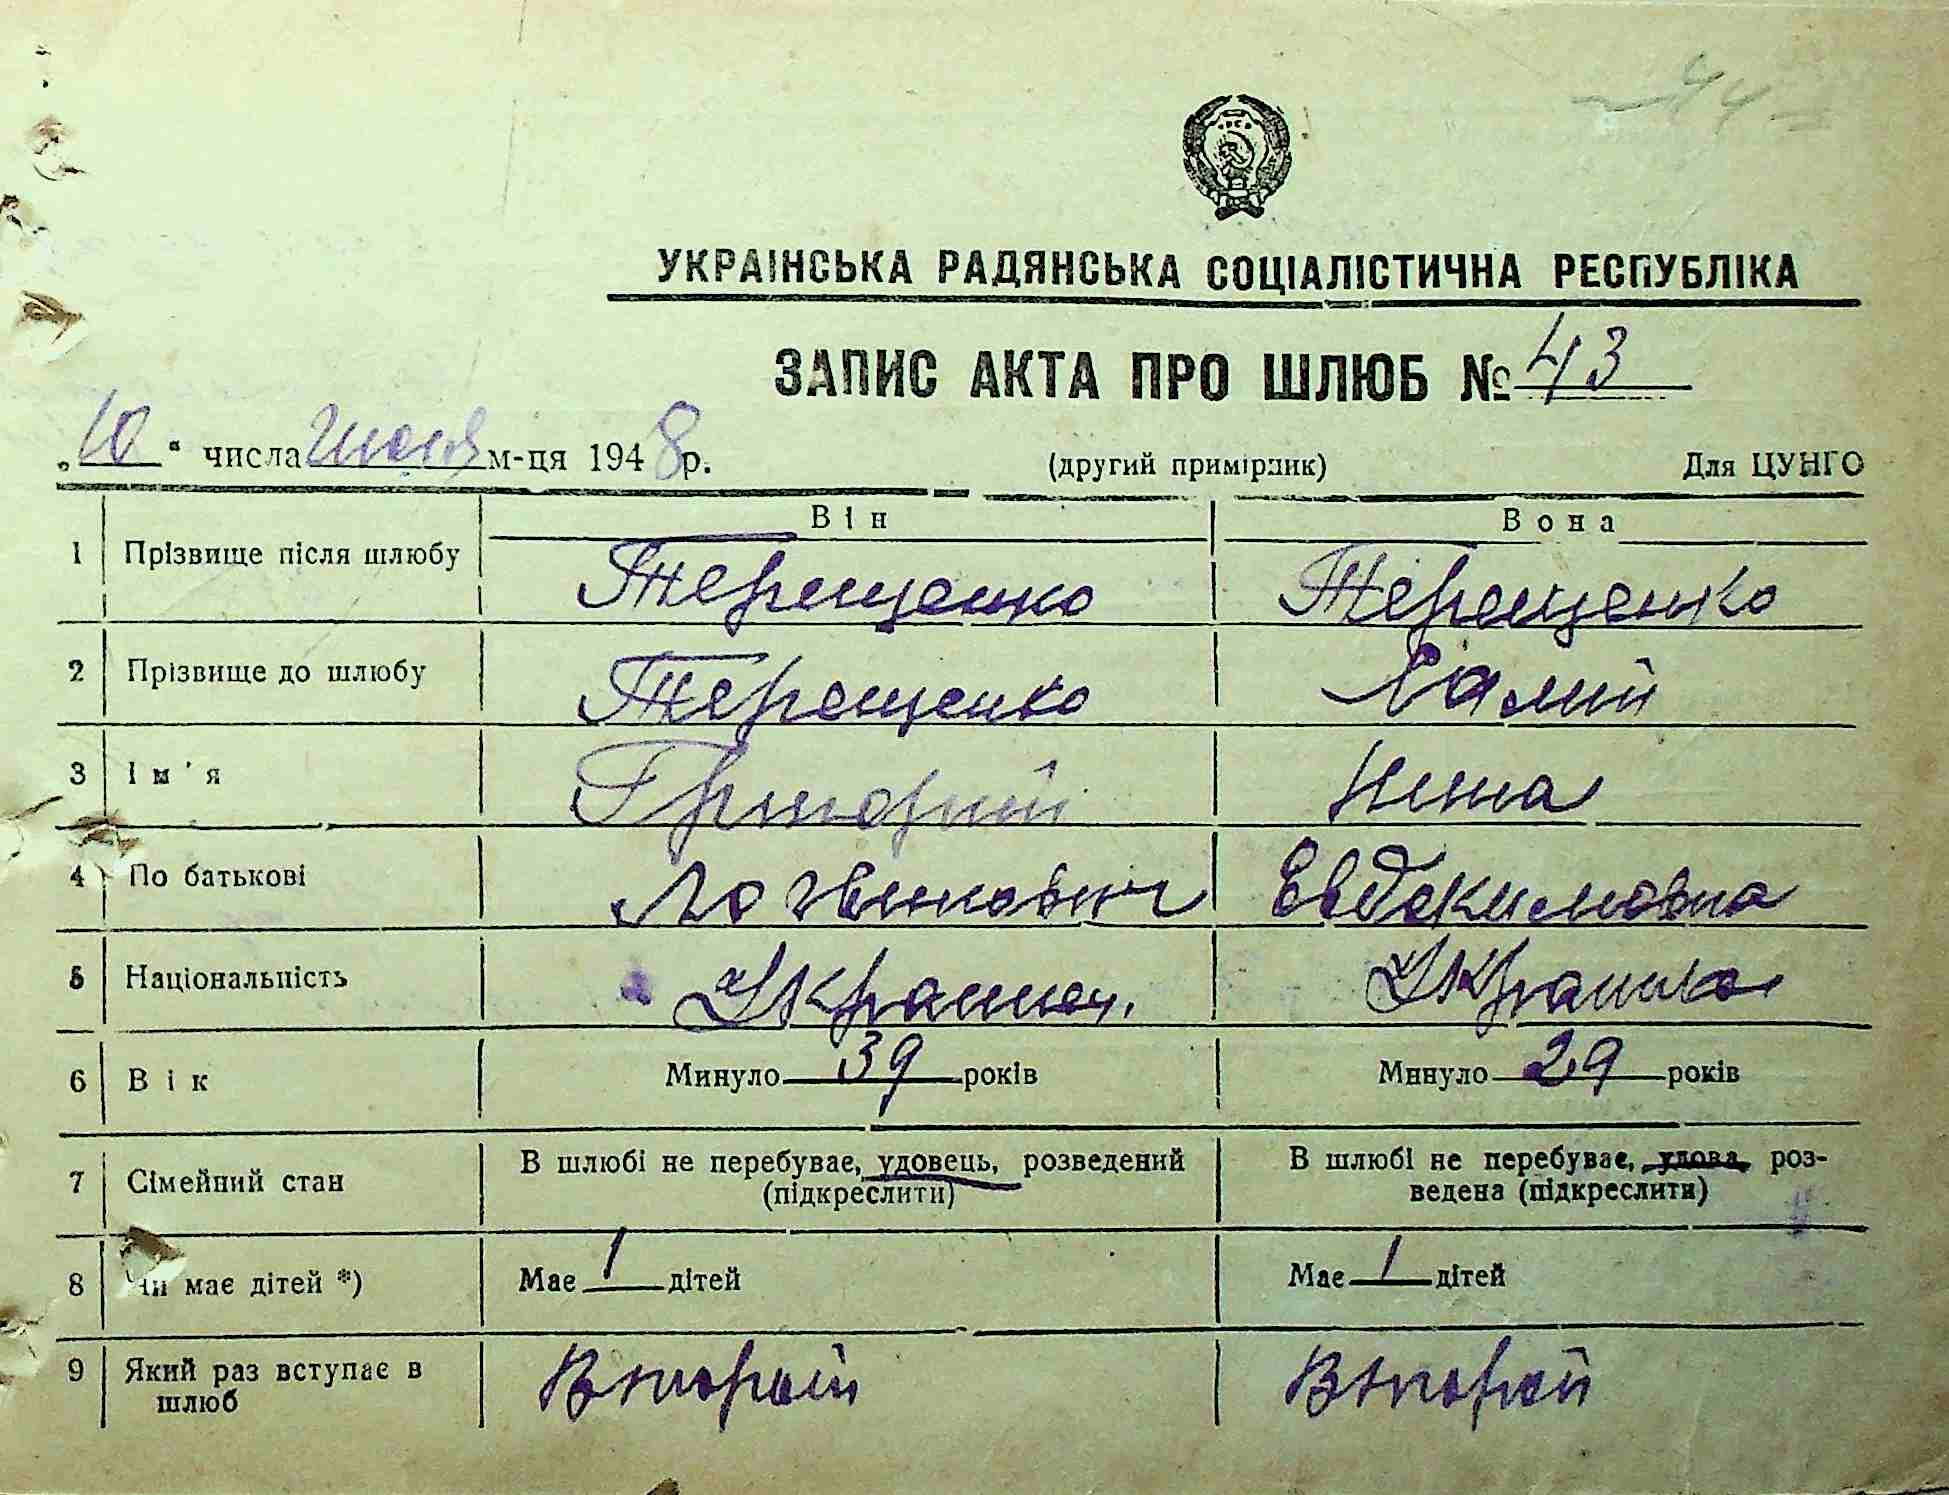 44
УКРАІНСЬКА РАДЯНСЬКА СОЦІАЛІСТИЧНА РЕСПУБЛІКА
ЗАПИС АКТА ПРО ШЛЮБ № 43
„10“ числа июня м-ця 1948 р. (другий примірник) Для ЦУНГО
Він Вона
1 Прізвище після шлюбу Терещенко Терещенко
2 Прізвище до шлюбу Терещенко
3 Ім'я Григорий Нина
4 По батькові Логвинович Евдокимовна
5 Національність Украинец. Украинка
6 Вік Минуло 39 років Минуло 29 років
7 Сімейний стан В шлюбі не перебуває, удовець, розведений В шлюбі не перебуває, удова, роз-
(підкреслити) ведена (підкреслити)
8 Чи має дітей *) Має 1 дітей Має 1 дітей
9 Який раз вступає в Второй Второй
шлюб